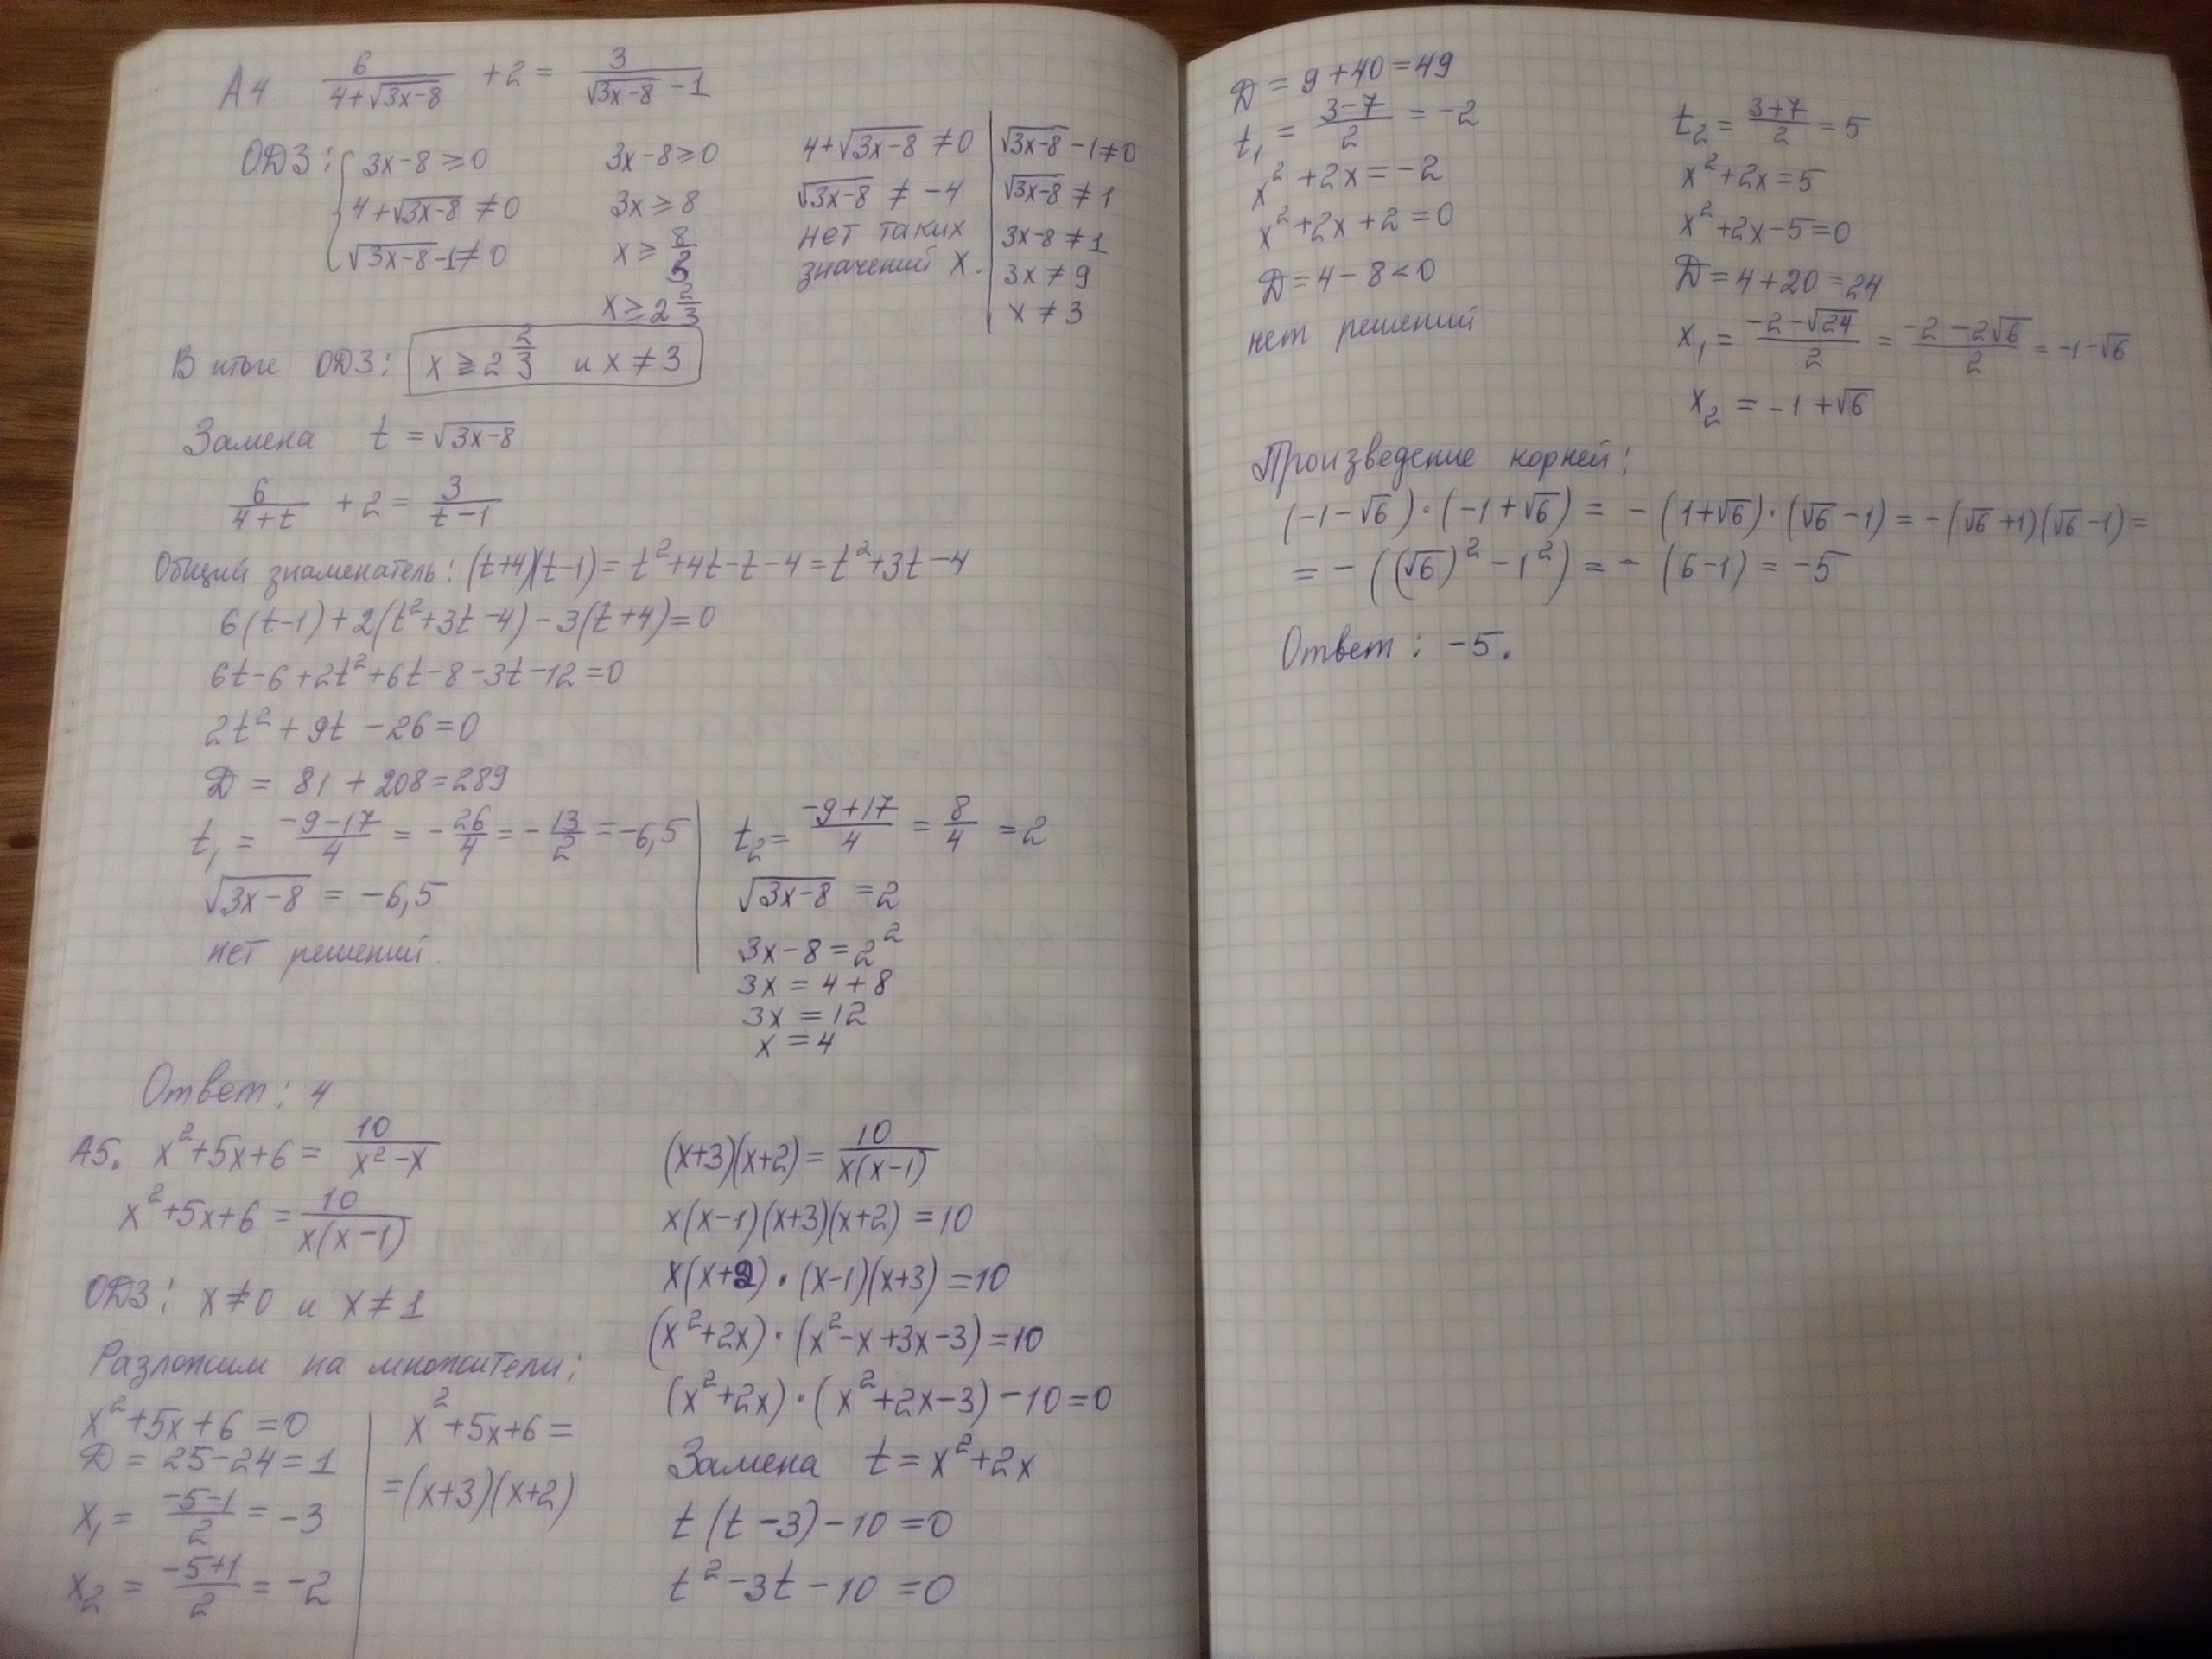 А4. 6/(4+√(3x-8)) + 2 = 3/(√(3x-8) - 1)
ОДЗ: { 3x-8 ≥ 0
4+√(3x-8) ≠ 0
√(3x-8) - 1 ≠ 0
3x-8 ≥ 0
3x ≥ 8
x ≥ 8/3
x ≥ 2 2/3
4+√(3x-8) ≠ 0
√(3x-8) ≠ -4
нет таких
значений x.
√(3x-8) - 1 ≠ 0
√(3x-8) ≠ 1
3x-8 ≠ 1
3x ≠ 9
x ≠ 3
В итоге ОДЗ: x ≥ 2 2/3 и x ≠ 3
Замена t = √(3x-8)
6/(4+t) + 2 = 3/(t-1)
Общий знаменатель: (t+4)(t-1) = t²+4t-t-4 = t²+3t-4
6(t-1)+2(t²+3t-4)-3(t+4)=0
6t-6+2t²+6t-8-3t-12=0
2t²+9t-26=0
D = 81+208=289
t₁ = (-9-17)/4 = -26/4 = -13/2 = -6,5
√(3x-8) = -6,5
нет решений.
t₂ = (-9+17)/4 = 8/4 = 2
√(3x-8) = 2
3x-8=2²
3x = 4+8
3x = 12
x = 4
Ответ: 4
А5. x²+5x+6 = 10/(x²-x)
x²+5x+6 = 10/(x(x-1))
ОДЗ: x≠0 и x≠1
Разложим на множители:
x²+5x+6=0
D = 25-24=1
x₁ = (-5-1)/2 = -3
x₂ = (-5+1)/2 = -2
x²+5x+6=
=(x+3)(x+2)
(x+3)(x+2) = 10/(x(x-1))
x(x-1)(x+3)(x+2)=10
x(x+2)·(x-1)(x+3)=10
(x²+2x)·(x²-x+3x-3)=10
(x²+2x)·(x²+2x-3)-10=0
Замена t=x²+2x
t(t-3)-10=0
t²-3t-10=0
D = 9+40=49
t₁ = (3-7)/2 = -2
x²+2x=-2
x²+2x+2=0
D=4-8<0
нет решений
t₂ = (3+7)/2 = 5
x²+2x=5
x²+2x-5=0
D=4+20=24
x₁ = (-2-√24)/2 = (-2-2√6)/2 = -1-√6
x₂ = -1+√6
Произведение корней:
(-1-√6)·(-1+√6) = -(1+√6)·(√6-1) = -(√6+1)(√6-1) =
= -((√6)²-1²) = -(6-1) = -5
Ответ: -5.